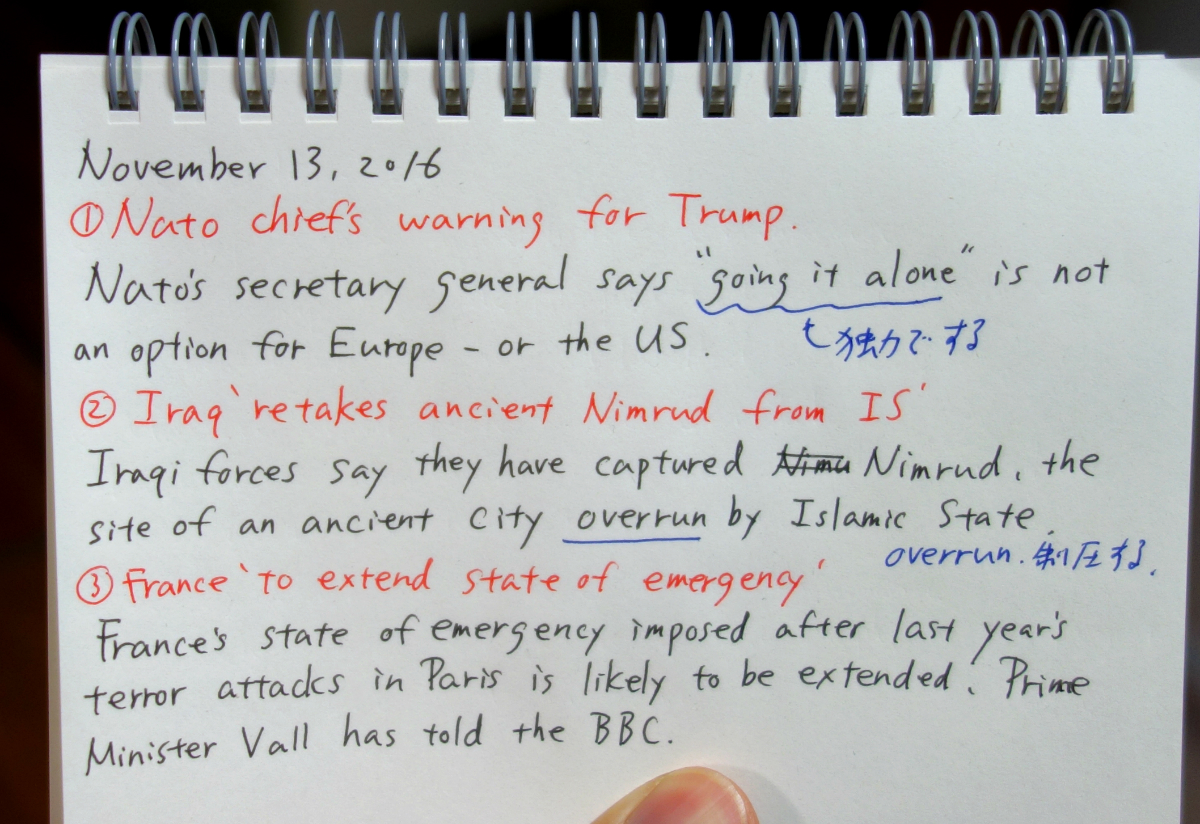 November 13, 2016
① Nato chief's warning for Trump.
Nato's secretary general says "going it alone" is not
an option for Europe - or the US.
独力でする
② Iraq 'retakes ancient Nimrud from IS'
Iraqi forces say they have captured Nimrud, the
site of an ancient city overrun by Islamic State.
overrun. 制圧する.
③ France 'to extend state of emergency'
France's state of emergency imposed after last year's
terror attacks in Paris is likely to be extended, Prime
Minister Vall has told the BBC.